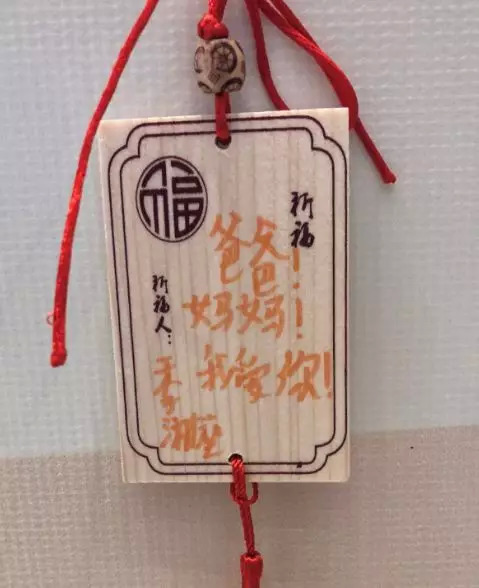 福
祈福
爸爸!
妈妈!
我爱你!
祈福人: